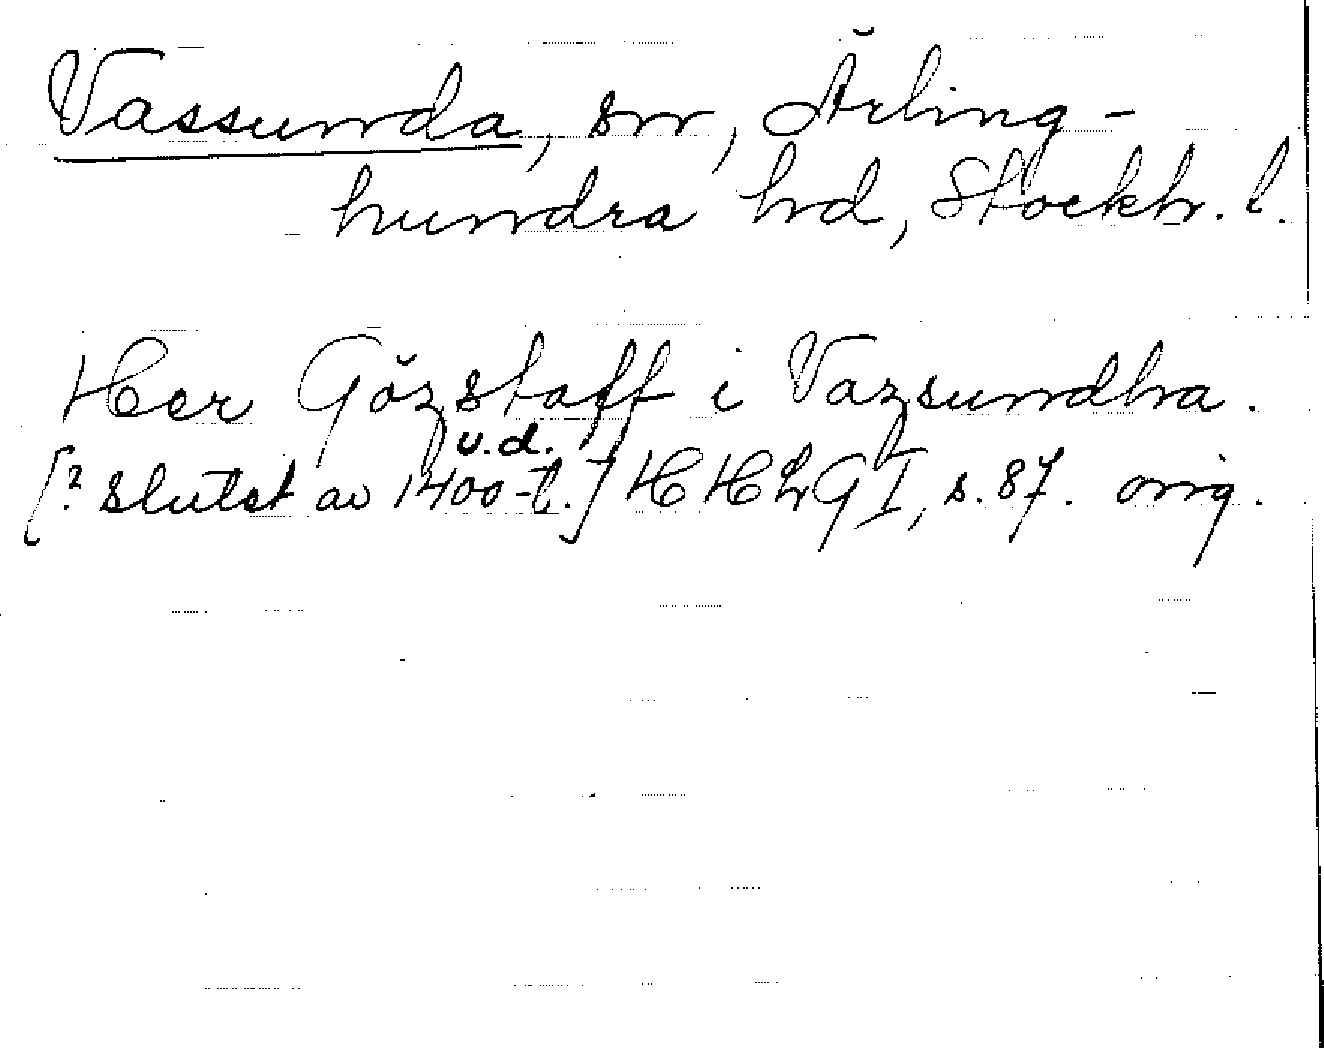 Vassunda, sn, Ärling-
hundra hd, Stockh. l.
Her Gözstaff i Vazsundha.
u.d.
[? slutet av 1400-t.] HH LG I, s. 87. orig.